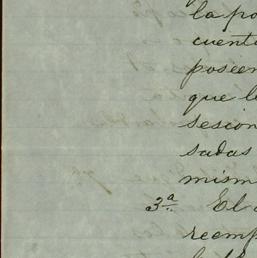 la po
cuent
poseen
que l
sesion
sadas
mism
3ª El
reemp